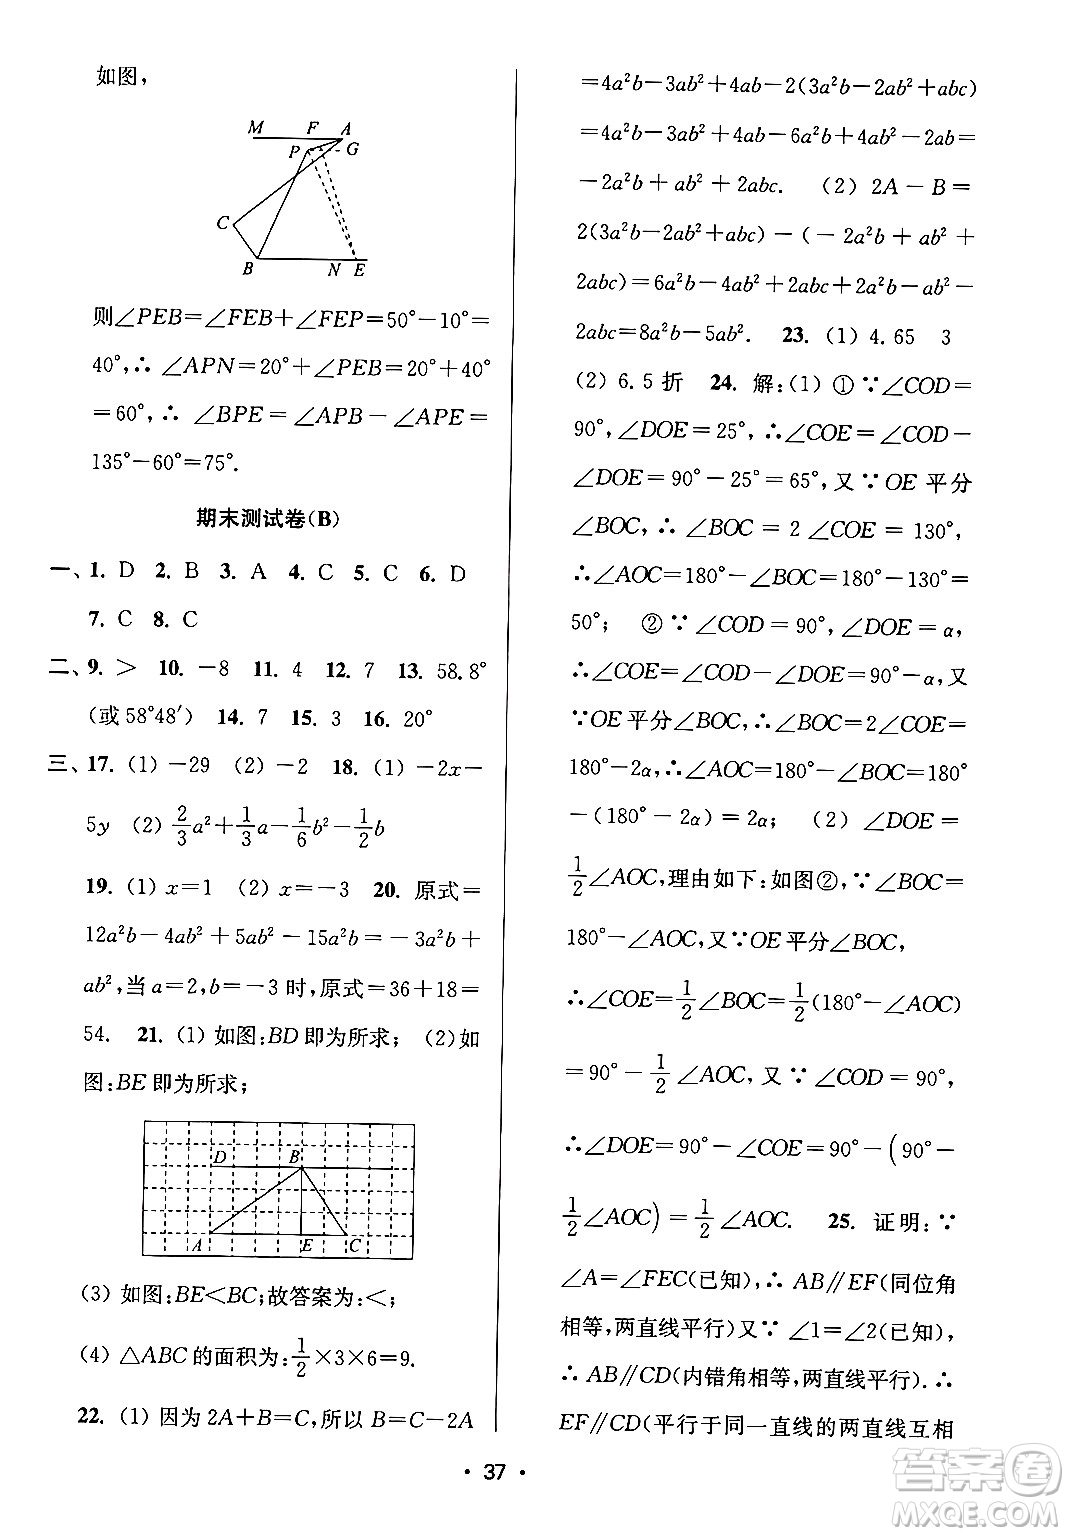 如图,
M F A
P G
C
B N E
则∠PEB=∠FEB+∠FEP=50°-10°=
40°,∴∠APN=20°+∠PEB=20°+40°
=60°,∴∠BPE=∠APB-∠APE=
135°-60°=75°.
期末测试卷(B)
一、1. D 2. B 3. A 4. C 5. C 6. D
7. C 8. C
二、9. > 10. -8 11. 4 12. 7 13. 58.8°
(或58°48′) 14. 7 15. 3 16. 20°
三、17. (1)-29 (2)-2 18. (1)-2x-
5y (2) 2/3a²+1/3a-1/6b²-1/2b
19. (1)x=1 (2)x=-3 20. 原式=
12a²b-4ab²+5ab²-15a²b=-3a²b+
ab²,当a=2,b=-3时,原式=36+18=
54. 21. (1)如图:BD即为所求; (2)如
图:BE即为所求;
D B
A E C
(3)如图:BE<BC;故答案为:<;
(4)△ABC的面积为:1/2×3×6=9.
22. (1)因为2A+B=C,所以B=C-2A
=4a²b-3ab²+4ab-2(3a²b-2ab²+abc)
=4a²b-3ab²+4ab-6a²b+4ab²-2ab=
-2a²b+ab²+2abc. (2)2A-B=
2(3a²b-2ab²+abc)-(-2a²b+ab²+
2abc)=6a²b-4ab²+2abc+2a²b-ab²-
2abc=8a²b-5ab². 23. (1)4.65 3
(2)6.5折 24. 解:(1)①∵∠COD=
90°,∠DOE=25°,∴∠COE=∠COD-
∠DOE=90°-25°=65°,又∵OE平分
∠BOC,∴∠BOC=2∠COE=130°,
∴∠AOC=180°-∠BOC=180°-130°=
50°; ②∵∠COD=90°,∠DOE=α,
∴∠COE=∠COD-∠DOE=90°-α,又
∵OE平分∠BOC,∴∠BOC=2∠COE=
180°-2α,∴∠AOC=180°-∠BOC=180°
-(180°-2α)=2α; (2)∠DOE=
1/2∠AOC,理由如下:如图②,∵∠BOC=
180°-∠AOC,又∵OE平分∠BOC,
∴∠COE=1/2∠BOC=1/2(180°-∠AOC)
=90°-1/2∠AOC,又∵∠COD=90°,
∴∠DOE=90°-∠COE=90°-(90°-
1/2∠AOC)=1/2∠AOC. 25. 证明:∵
∠A=∠FEC(已知),∴AB∥EF(同位角
相等,两直线平行)又∵∠1=∠2(已知),
∴AB∥CD(内错角相等,两直线平行).∴
EF∥CD(平行于同一直线的两直线互相
• 37 •
答案卷
MXQE.COM